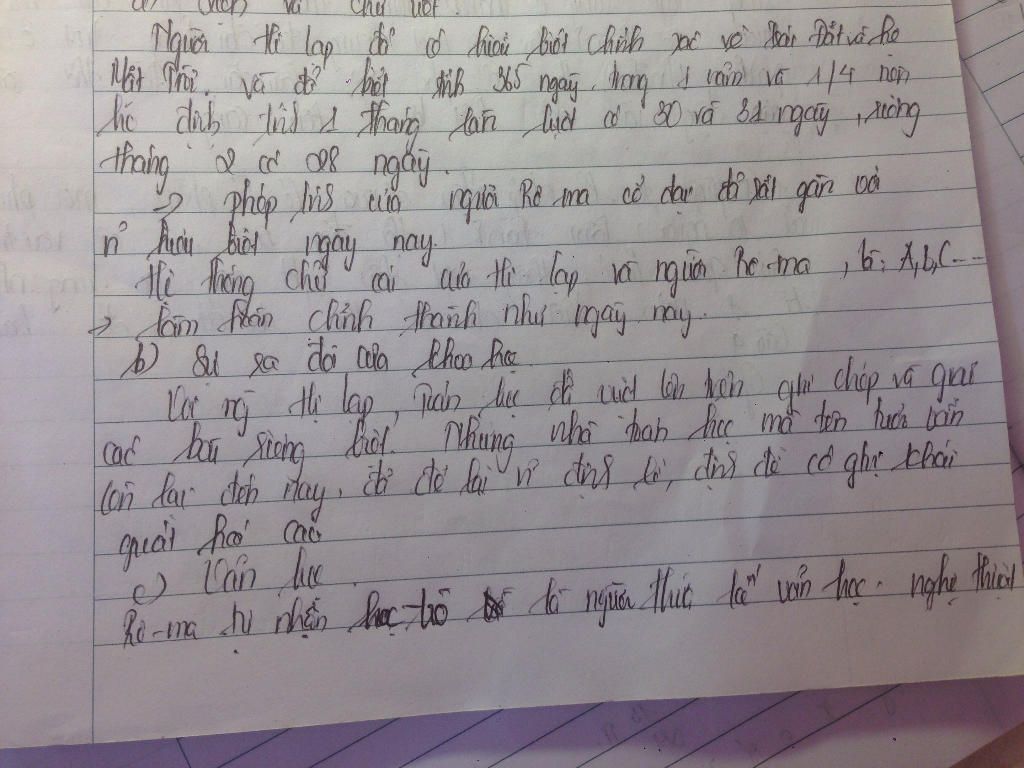 a) Lịch và chữ viết.
Người Hi lạp đã có hiểu biết chính xác về trái Đất và hệ
Mặt Trời, và đã biết tính 365 ngày trong 1 năm và 1/4 nên
họ định tính 1 tháng lần lượt có 30 và 31 ngày, riêng
tháng 2 có 28 ngày.
=> phép tính của người Rô ma cổ đại đã rất gần với
hiểu biết ngày nay.
Hệ thống chữ cái của Hi lạp và người Rô-ma, là: A, B, C ...
-> hoàn chỉnh thành như ngày nay.
b) Sự ra đời của khoa học
Với ng Hi lạp, Toán học đã vượt lên trên ghi chép và giải
các bài riêng biệt. Những nhà toán học mà tên tuổi vẫn
còn lại đến nay, đã để lại định lí, định đề có giá khái
quát hoá cao
c) Văn học
Rô-ma tự nhận học trò là người thừa kế văn học - nghệ thuật